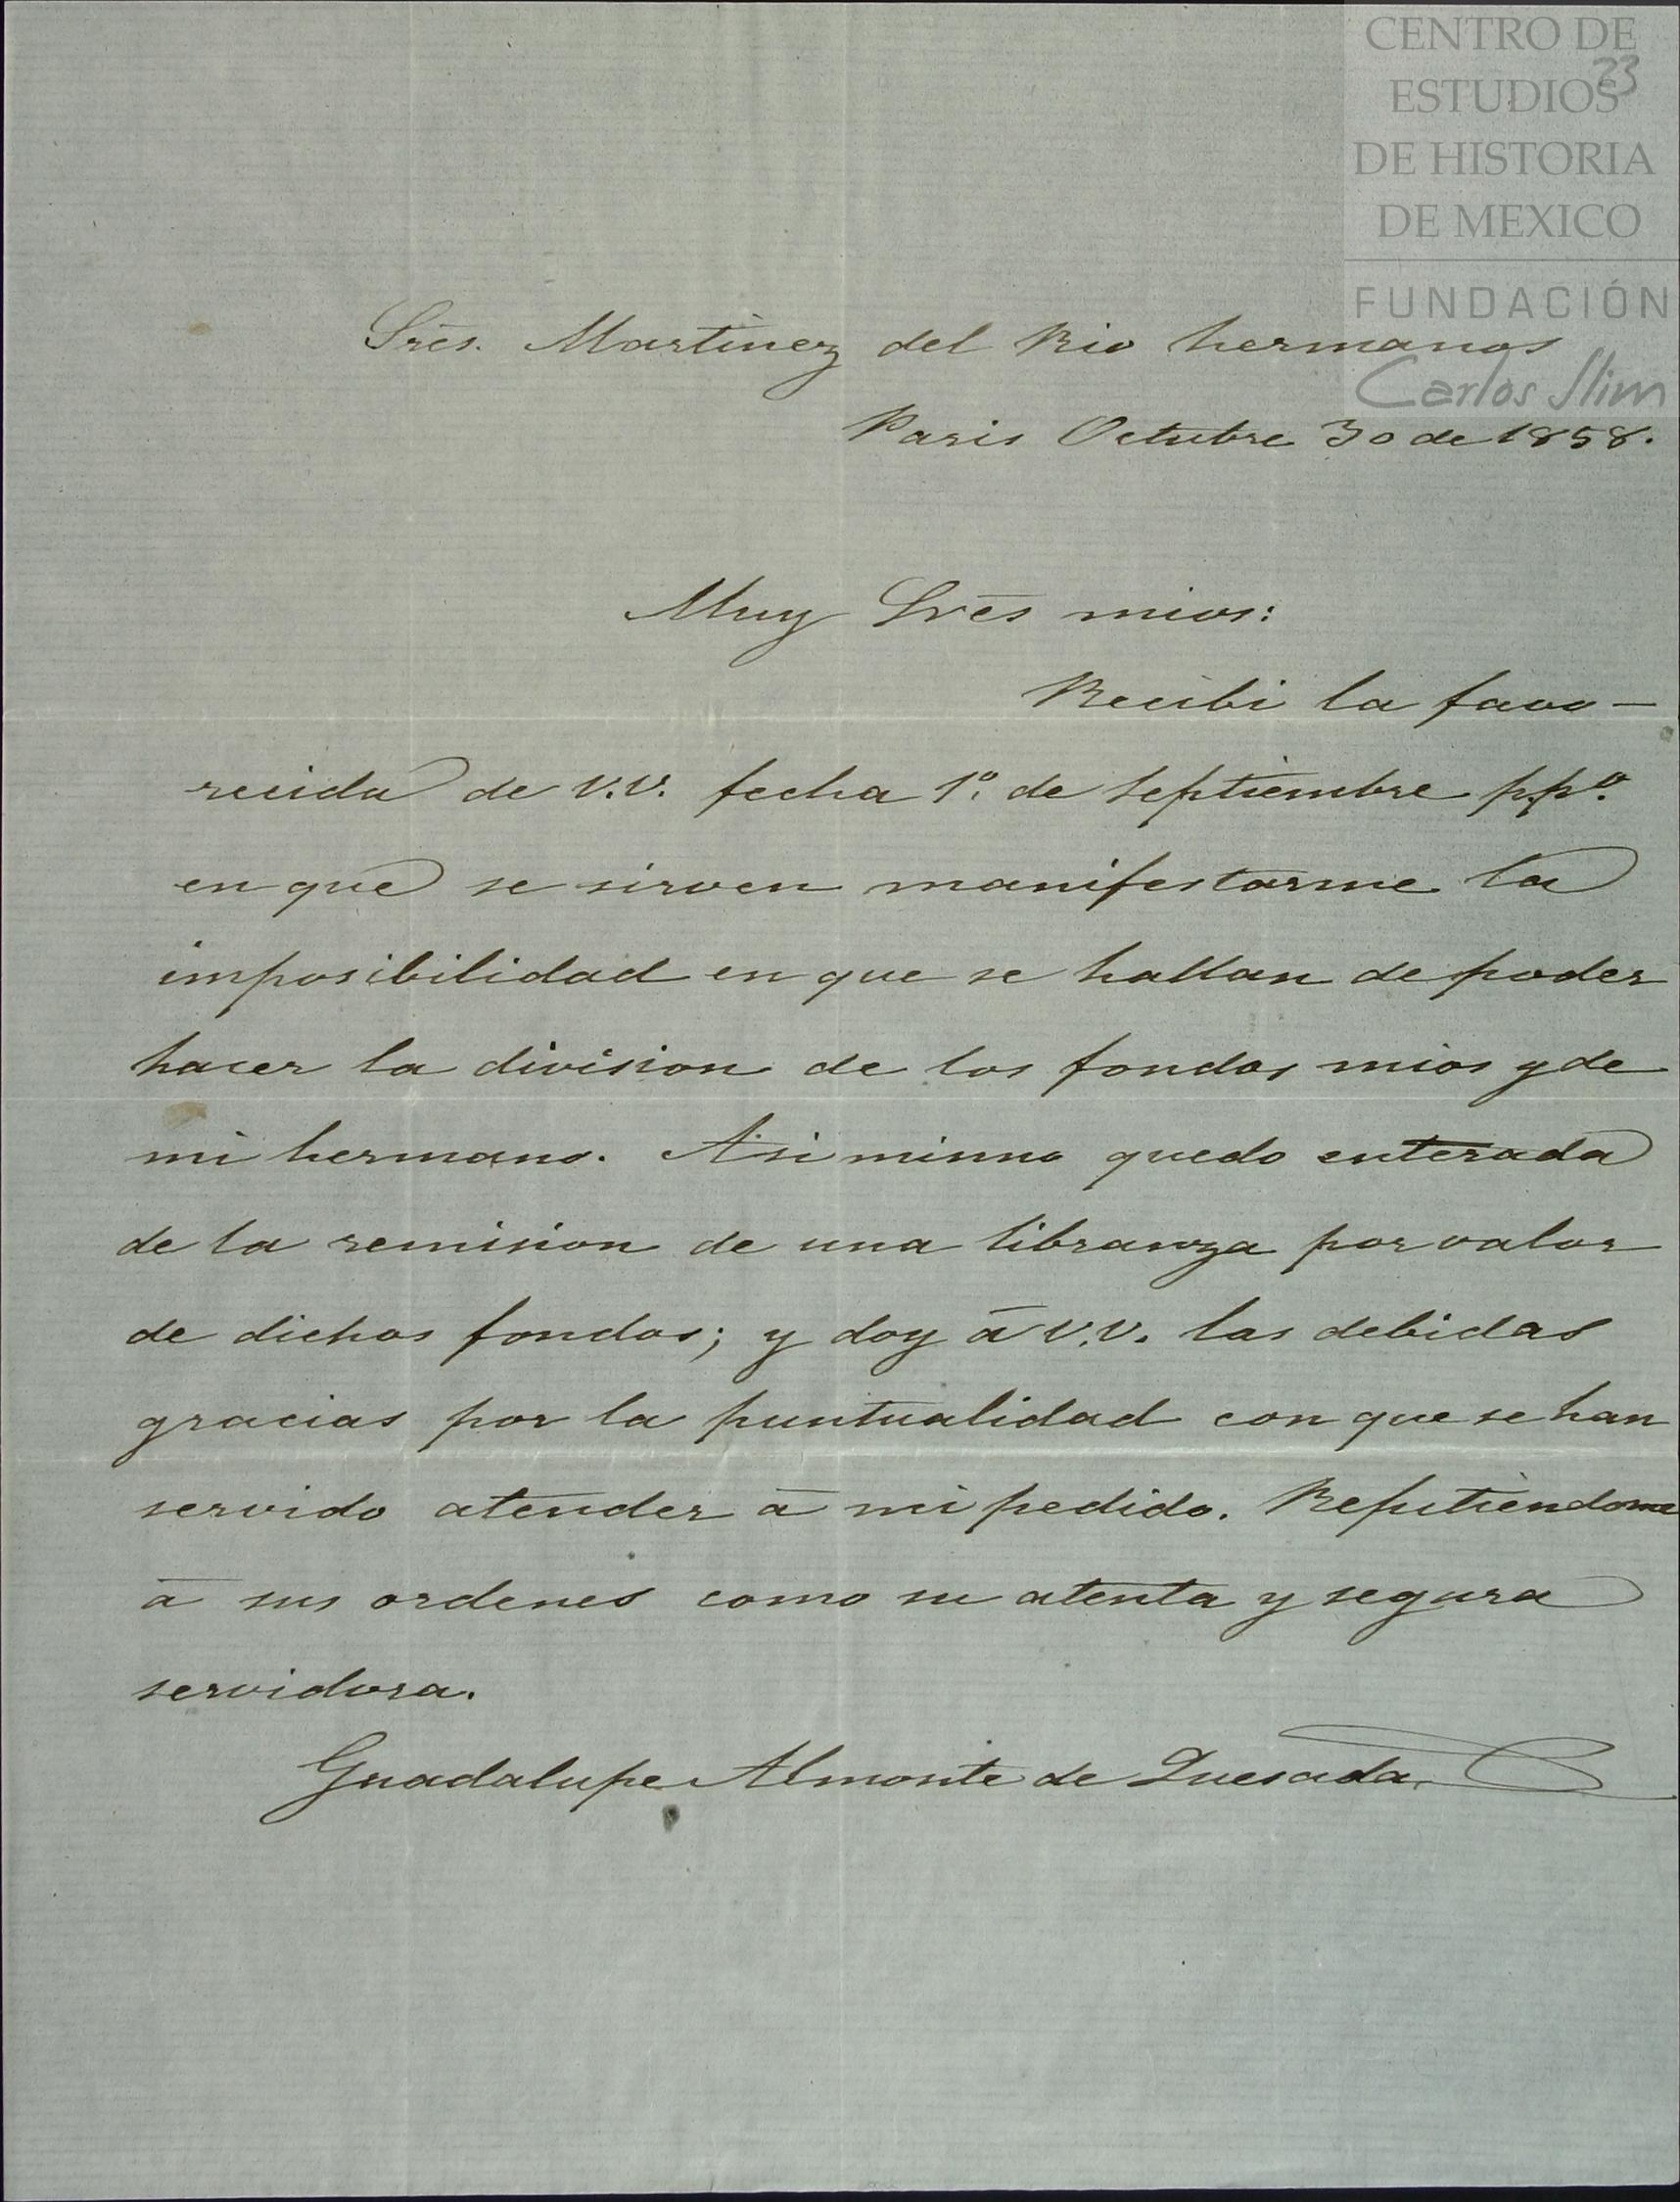 CENTRO DE
23
ESTUDIOS
DE HISTORIA
DE MEXICO
FUNDACIÓN
Carlos Slim
Sres. Martinez del Rio hermanos
Paris Octubre 30 de 1858.
Muy Sres mios:
Recibi la favo-
recida de V.V. fecha 1º. de septiembre p.pº.
en que se sirven manifestarme la
imposibilidad en que se hallan de poder
hacer la division de los fondos mios y de
mi hermano. Asi mismo quedo enterada
de la remision de una libranza por valor
de dichos fondos; y doy á V.V. las debidas
gracias por la puntualidad con que se han
servido atender á mi pedido. Repitiendome
á sus ordenes como su atenta y segura
servidora.
Guadalupe Almonte de Quesada.